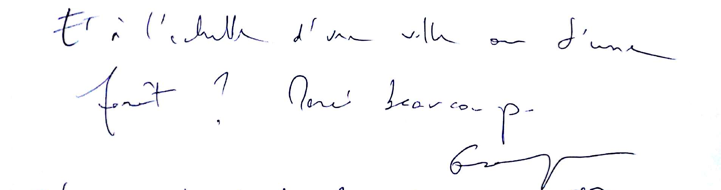 Et à l'échelle d'une ville ou d'une
forêt ? Merci beaucoup.